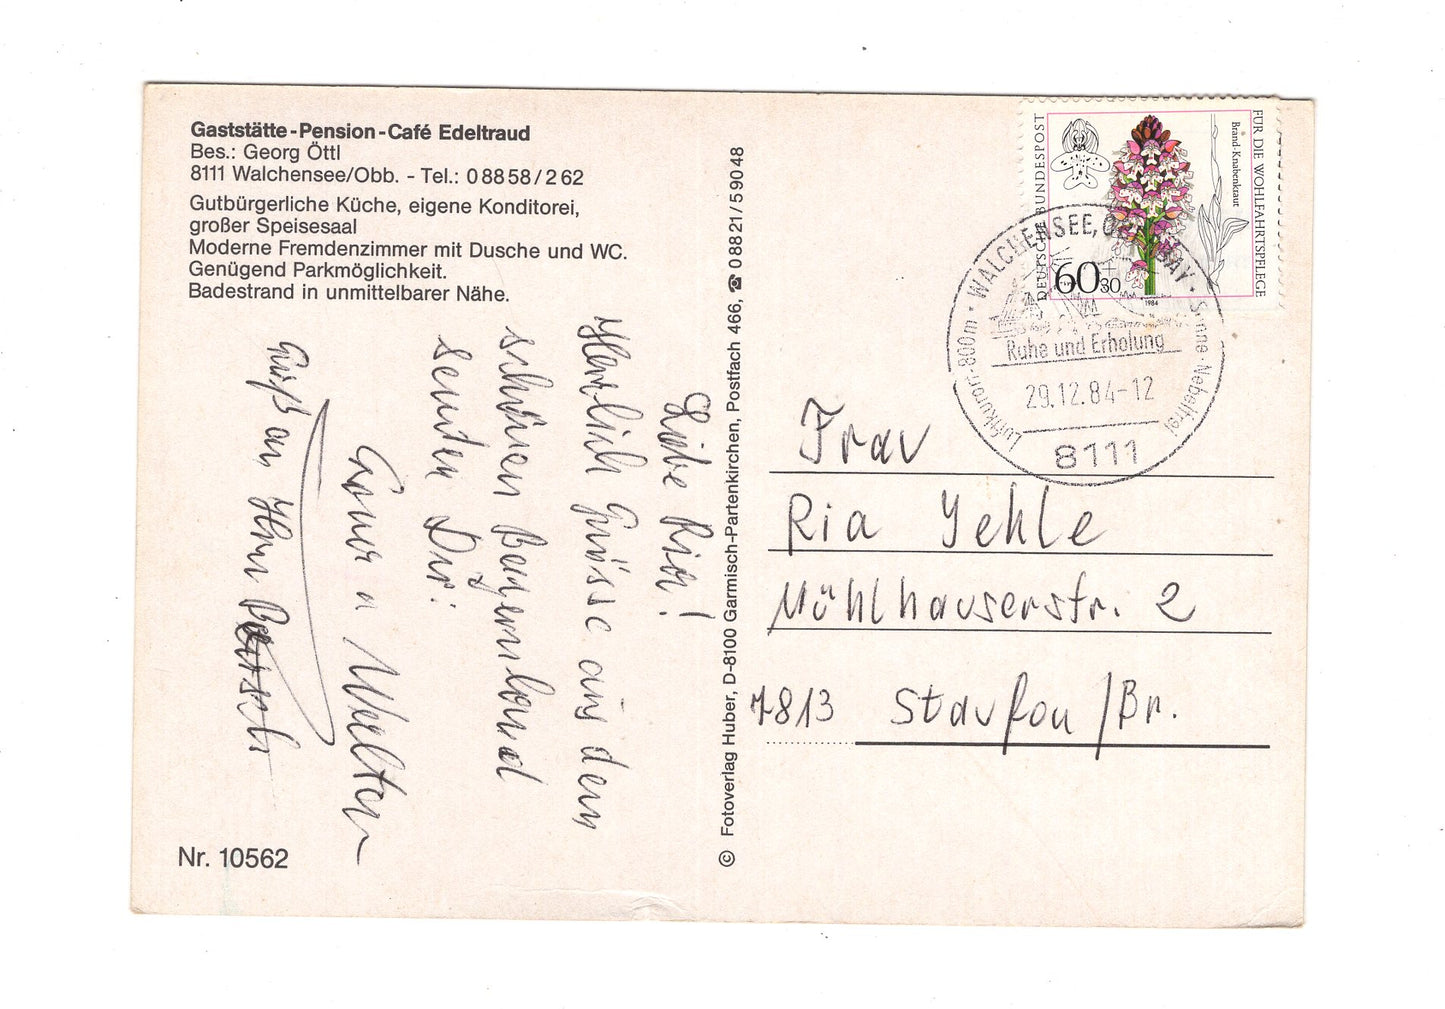 Gaststätte-Pension-Café Edeltraud
Bes.: Georg Öttl
8111 Walchensee/Obb. - Tel.: 08858/262
Gutbürgerliche Küche, eigene Konditorei,
großer Speisesaal
Moderne Fremdenzimmer mit Dusche und WC.
Genügend Parkmöglichkeit.
Badestrand in unmittelbarer Nähe.
Liebe Ria!
Herzlich Grüsse aus dem
schönen Bayernland
senden Dir:
Gruß an Hrn
Nr. 10562
© Fotoverlag Huber, D-8100 Garmisch-Partenkirchen, Postfach 466, ☎ 08821/59048
DEUTSCHE BUNDESPOST
60+30
1984
Brand-Knabenkraut
FÜR DIE WOHLFAHRTSPFLEGE
WALCHENSEE,
BAY
Luftkurort-800m
Nebelfrei
Ruhe und Erholung
29.12.84-12
8111
Frau
Ria Jehle
Mühlhauserstr. 2
7813 Staufen/Br.